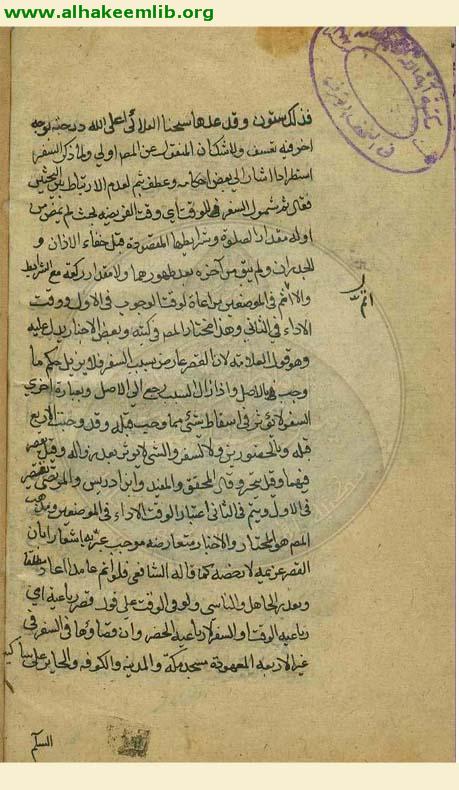 www.alhakeemlib.org
فذلك ستون وقد عدها شيخنا العلائي اعلى الله درجته لوجه
اخر فيه تعسف ولا شك ان المنقول عن المصـ اولى ولما ذكر السفر
استطرادا اشار الى بعض احكامه وعطف بثم لعدم الارتباط بين البحثين
فقال ثم شمول السفر للوقت اي وقت الفريضة بحيث لم يمض من
اوله مقدار الصلوة وشرايطها المفقودة قبل خفاء الاذان و
الجدران ولم يبق من آخره بعد ظهورهما ولا مقدار ركعة مع الشرايط
والا اتم في الموضعين مراعاة لوقت الوجوب في الاول ووقت
الاداء في الثاني وهذا مختار المصـ في كتبه وبعض الاخبار يدل عليه
وهو قول العلامة لان القصر عارض بسبب السفر فلا يزيل حكم ما
وجب بالاصل واذا زال السبب رجع الى الاصل وبعبارة اخرى
السفر لا يؤثر في اسقاط شئ مما وجب قبله وقد وجبت الاربع
قبله والشئ لا يؤثر بعد زواله وقيل يقصر
فيهما وقيل يتخير وقال المحقق والمفيد وابن ادريس والمرتضى يقصر
في الاول ويتم في الثاني اعتبار الوقت الاداء في الموضعين ومذهب
المصـ هو المختار والاخبار متعارضة موجب اشعار بان
القصر عزيمة لا رخصة كما قاله الشافعي فلو اتم عامدا اعاد مطلقا
ويعذر الجاهل والناسي ولو في الوقت على قول قصر رباعية اي
رباعية الوقت او السفر لا رباعية الحضر وان قضاؤها في السفر في
غير الاربعة المعهودة مسجد مكة والمدينة والكوفة والحاير على ساكنه
السلم